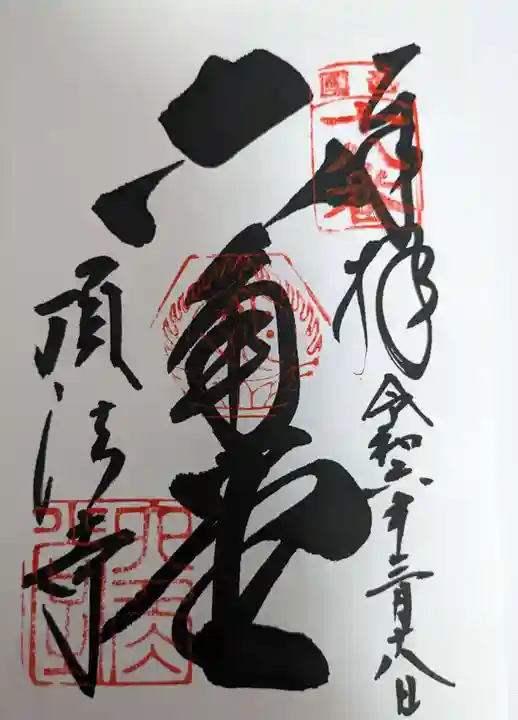 奉拝
令和六年三月十八日
六角堂
頂法寺